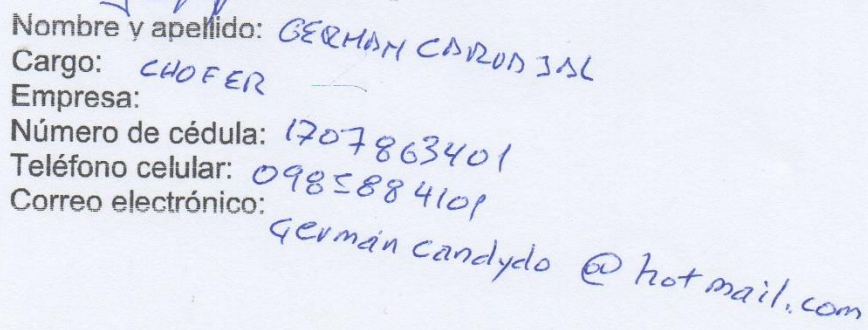 Nombre y apellido: GERMAN CARVAJAL
Cargo: CHOFER
Empresa:
Número de cédula: 1707863401
Teléfono celular: 0985884101
Correo electrónico:
germáncandydo@hotmail.com